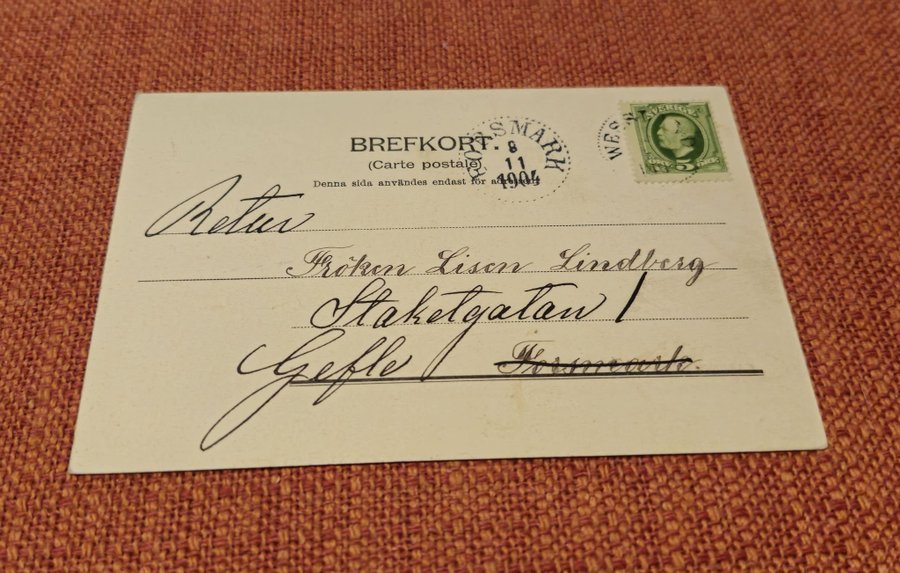 BREFKORT.
(Carte postale)
Denna sida användes endast för adressen
FORSMARK
8
11
1904
SVERIGE
5
Retur
Fröken Lisen Lindberg
Staketgatan 1
Gefle Forsmark.